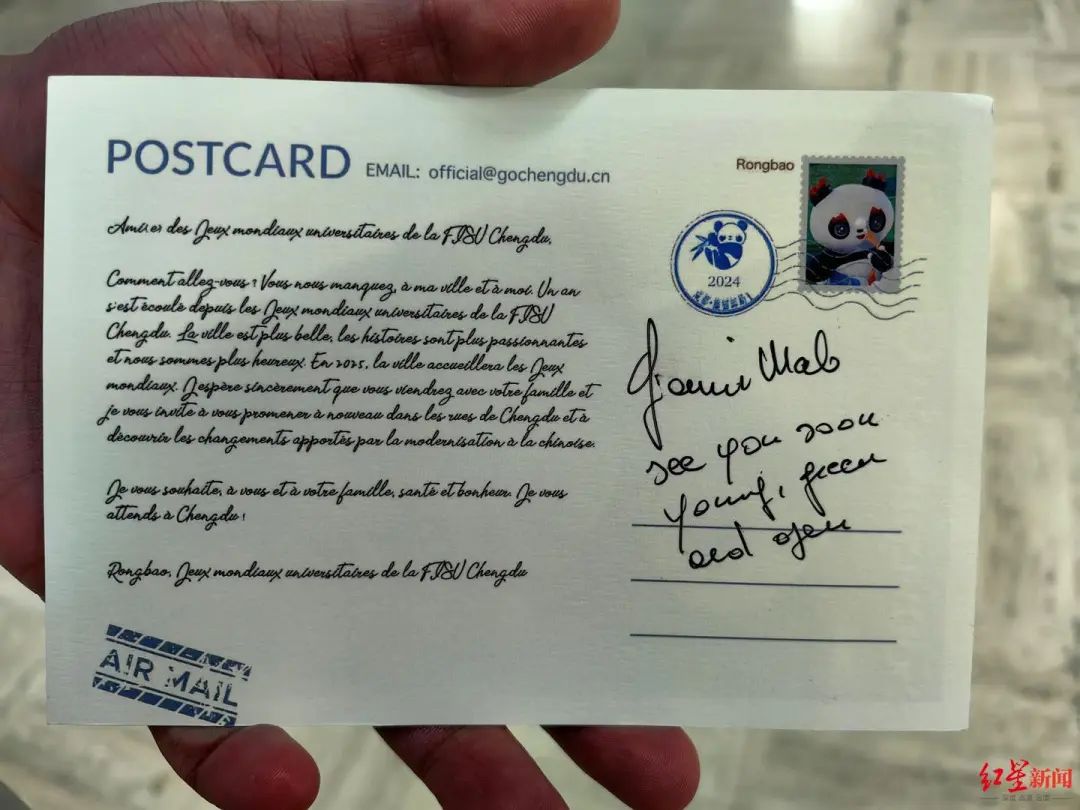 POSTCARD EMAIL: official@gochengdu.cn
Ami.es des Jeux mondiaux universitaires de la FISU Chengdu,
Comment allez-vous ? Vous nous manquez, à ma ville et à moi. Un an
s'est écoulé depuis les Jeux mondiaux universitaires de la FISU
Chengdu. La ville est plus belle, les histoires sont plus passionnantes
et nous sommes plus heureux. En 2025, la ville accueillera les Jeux
mondiaux. J'espère sincèrement que vous viendrez avec votre famille et
je vous invite à vous promener à nouveau dans les rues de Chengdu et à
découvrir les changements apportés par la modernisation à la chinoise.
Je vous souhaite, à vous et à votre famille, santé et bonheur. Je vous
attends à Chengdu !
Rongbao, Jeux mondiaux universitaires de la FISU Chengdu
AIR MAIL
Rongbao
2024
see you soon
young, green
and open
红星新闻